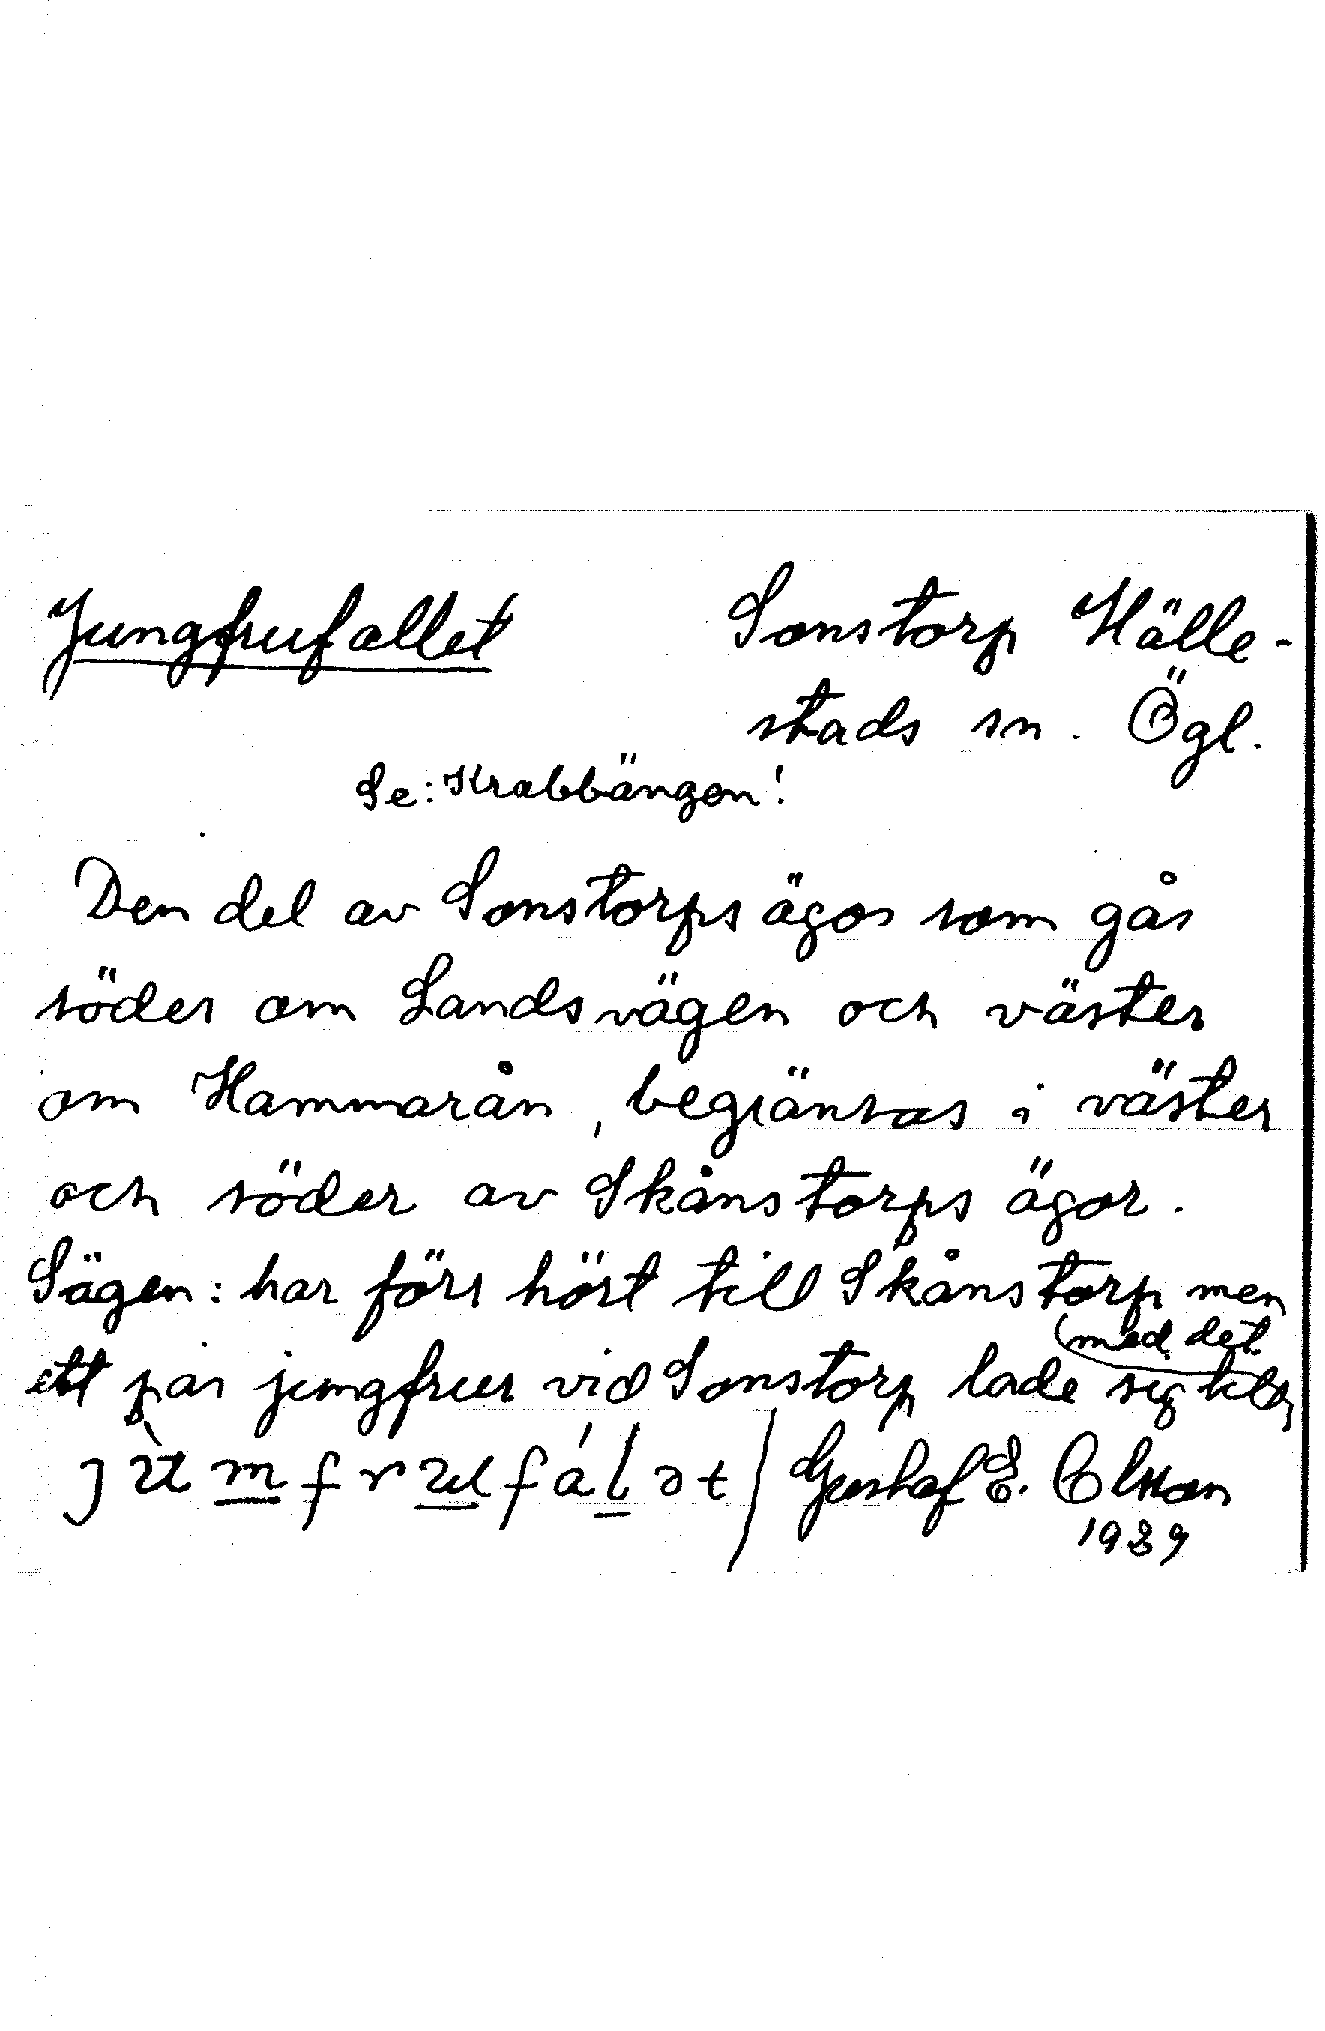 Jungfrufallet Sonstorp Hälle-
stads sn. Ögl.
Se: Krabbängen!
Den del av Sonstorps ägor som går
söder om Landsvägen och väster
om Hammarån, begränsas i väster
och söder av Skånstorps ägor.
Sägen: har förr hört till Skånstorp men
ett par jungfrur vid Sonstorp lade sig till
med det
Gustaf E. Olsson
1939